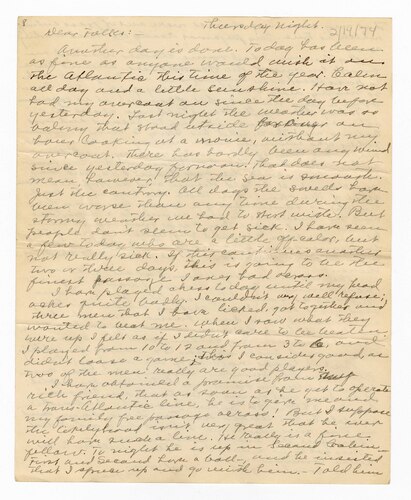 8
Thursday Night.
Dear Folks:—
Another day is done. Today has been
as fine as anyone would wish it on
the Atlantic this time of the year. Calm
all day and a little sunshine. Have not
had my overcoat on since the day before
yesterday. Last night the weather was so
balmy that stood outside an
hour looking at a movie, without my
overcoat. There has hardly been any wind
since yesterday forenoon. That does not
mean however that the sea is smooth.
Just the contrary. All day the swells have
been worse than any time during the
stormy weather we had to start with. But
people don't seem to get sick. I have seen
a few today who are a little off color, but
not really sick. If this continues another
two or three days, this is going to be the
finest passage I ever had across.
I have played chess today until my head
aches quite badly. I couldn't very well refuse;
three men that I have licked, got together and
wanted to beat me. When I saw what they
were up I felt as if I didn't care to be beaten.
I played from 10 to 12 and from 3 to 6 and
didn't loose a game; this I consider good, as
two of the men really are good players.
I have obtained a promise from
rich friend, that as soon as he get to operate
a trans-Atlantic line he is to give me and
my family free passage across! But I suppose
the likelyhood isn't very great that he ever
will have such a line. He really is a fine
fellow. To night he is up in Second Cabin—
First and Second have a ball—, and he insisted
that I dress up and go with him. Told him